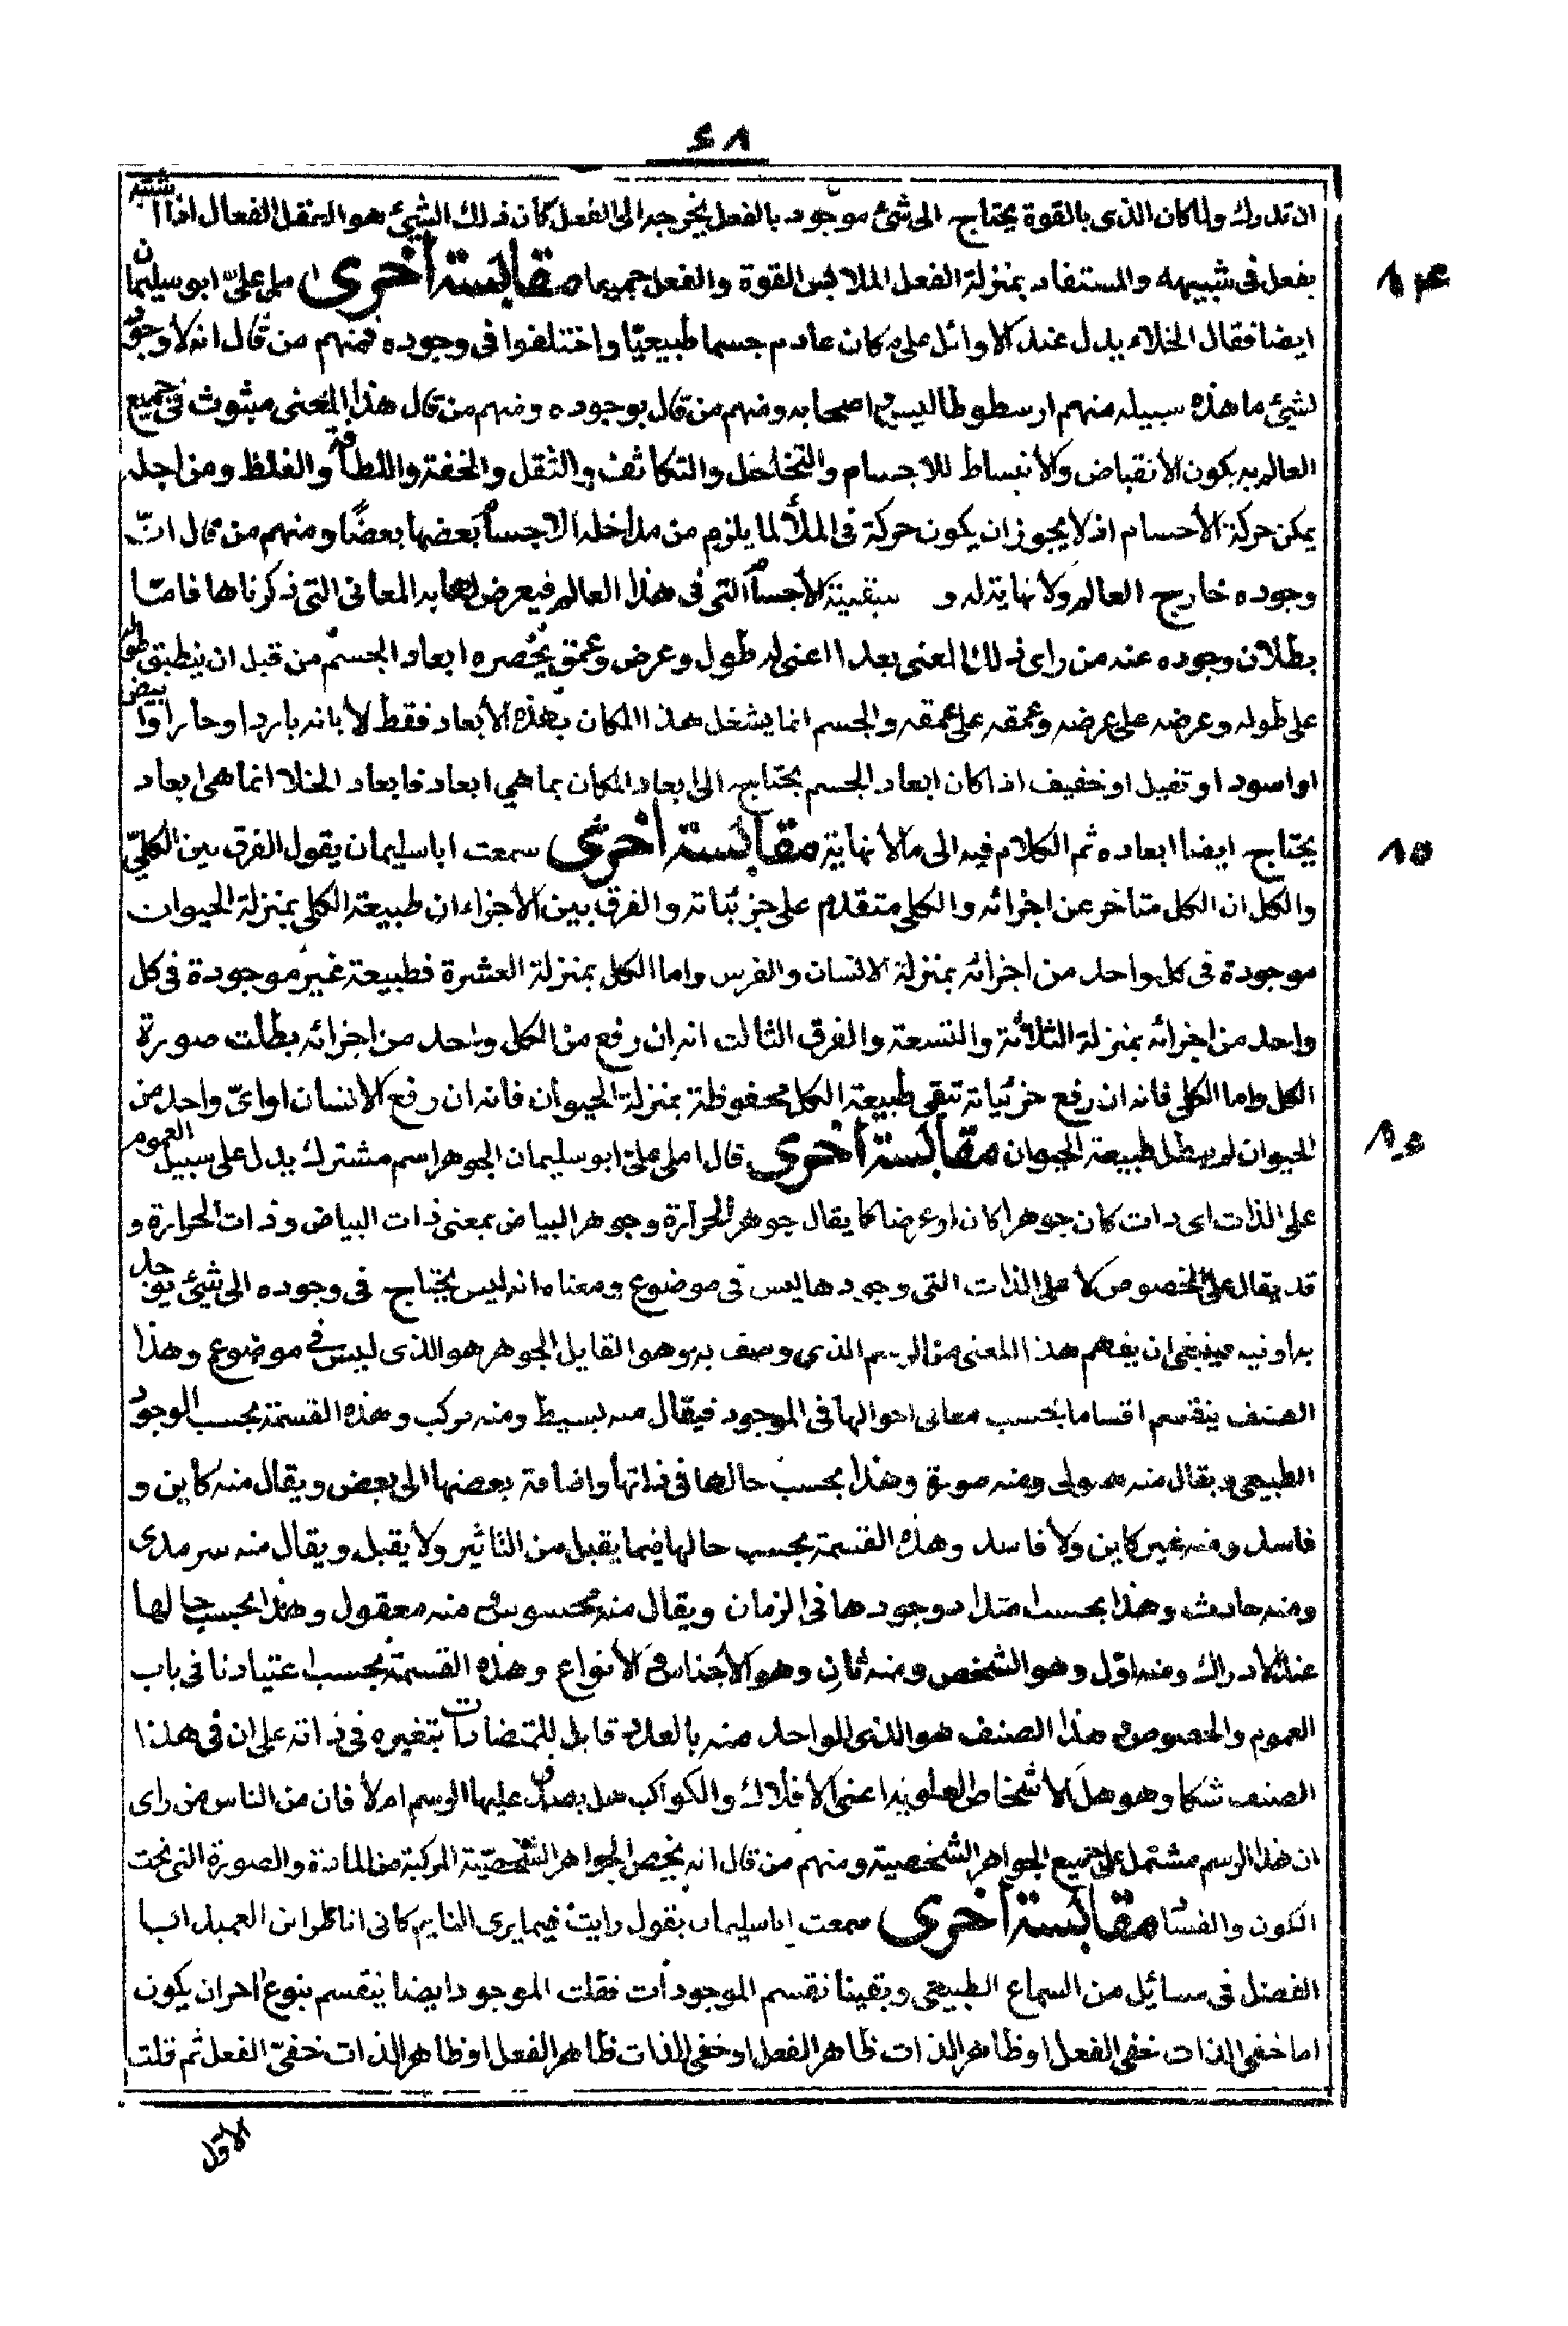 ٤٨
ان تدرك ولما كان الذى بالقوة يحتاج الى شئ موجود بالفعل يخرجه الى الفعل كان ذلك الشيئ هو العقل الفعال اذا
يفعل فى شبيهه والمستفاد بمنزلة الفعل الملابس القوة والفعل جميعا مقابسة أخرى املى علىّ ابو سليمان
ايضا فقال الخلاء يدل عند الاوائل على مكان عادم جسما طبيعيّا واختلفوا فى وجوده فمنهم من قال انه لا وجود
لشيئ ما هذه سبيله منهم ارسطوطاليس واصحابه ومنهم من قال بوجوده ومنهم من قال هذا المعنى مبثوث فى جميع
العالم به يكون الانقباض والانبساط للاجسام والتخلخل والتكاثف والثقل والخفة واللطافة والغلظ ومن اجله
يمكن حركة الأجسام اذ لا يجوز ان يكون حركة فى الملأ لما يلزم من مداخلة الاجسام بعضها بعضًا ومنهم من قال انّ
وجوده خارج العالم ولا نهاية له و الأجسام التى فى هذا العالم فيعرض لها به المعانى التى ذكرناها فامّا
بطلان وجوده عند من راى ذلك المعنى بعدا اعنى له طول وعرض وعمق يحصره ابعاد الجسم من قبل ان ينطبق طوله
على طوله وعرضه على عرضه وعمقه على عمقه والجسم انما يشغل هذا المكان بهذه الأبعاد فقط لا بانه بارد او حار او ابيض
او اسود او ثقيل او خفيف اذا كان ابعاد الجسم يحتاج الى ابعاد المكان بما هي ابعاد فابعاد الخلا انما هى ابعاد
يحتاج ايضا ابعاده ثم الكلام فيه الى مالا نهاية مقابسة أخرى سمعت ابا سليمان يقول الفرق بين الكلّي
والكل ان الكل متأخر عن اجزائه والكلى متقدم على جزئياته والفرق بين الأجزاء ان طبيعة الكلى بمنزلة الحيوان
موجودة فى كل واحد من اجزائه بمنزلة الانسان والفرس واما الكل بمنزلة العشرة فطبيعة غير موجودة فى كل
واحد من اجزائه بمنزلة الثلاثة والتسعة والفرق الثالث انه ان رفع من الكل واحد من اجزائه بطلت صورة
الكل واما الكلى فانه ان رفع جزئياته تبقى طبيعة الكل محفوظة بمنزلة الحيوان فانه ان رفع الانسان او اىّ واحد من
الحيوان لم يبطل طبيعة الحيوان مقابسة أخرى قال املى علىّ ابو سليمان الجوهر اسم مشترك يدل على سبيل العموم
على الذات اى ذات كان جوهرا كان او عرضا كما يقال جوهر الحرارة وجوهر البياض بمعنى ذات البياض وذات الحرارة و
قد يقال على الخصوص كا على الذات التى وجودها ليس فى موضوع ومعناه انه ليس يحتاج فى وجوده الى شيئ يوجد
به او فيه فينبغى ان يفهم هذا المعنى من الرسم الذي وصف به وهو القايل الجوهر هو الذى ليس فى موضوع وهذا
الصنف ينقسم اقساما بحسب معانى احوالها فى الموجود فيقال منه بسيط ومنه مركب وهذه القسمة بحسب الوجود
الطبيعى ويقال منه هيولى ومنه صورة وهذا بحسب حالها فى ذاتها واضافة بعضها الى بعض ويقال منه كاين و
فاسد ومنه غير كاين ولا فاسد وهذه القسمة بحسب حالها فيما يقبل من التأثير ولا يقبل ويقال منه سرمدى
ومنه حادث وهذا بحسب امتداد وجودها فى الزمان ويقال منه محسوس و منه معقول وهذا بحسب حالها
عند الادراك ومنه اوّل وهو الشخص ومنه ثانٍ وهو الأجناس و الأنواع وهذه القسمة بحسب اعتيادنا فى باب
العموم والخصوص و هذا الصنف هو الذى الواحد منه بالعدد قابل للمتضادات بتغيره فى ذاته على ان فى هذا
الصنف شكا وهو هل الأشخاص العلوية اعنى الأفلاك والكواكب هل يصدق عليها الرسم ام لا فان من الناس من راى
ان هذا الرسم مشتمل على جميع الجواهر الشخصية ومنهم من قال انه يخص الجواهر الشخصيّة المركبة من المادة والصورة التى تحت
الكون والفساد مقابسة أخرى سمعت ابا سليمان يقول رايت فيما يرى النايم كانى اناظر ابن العميد ابا
الفضل فى مسائل من السماع الطبيعى وبقينا نقسم الموجودات فقلت الموجود ايضا ينقسم بنوع اخر ان يكون
اما خفى الذات خفى الفعل او ظاهر الذات ظاهر الفعل او خفى الذات ظاهر الفعل او ظاهر الذات خفىّ الفعل ثم قلت
الاول